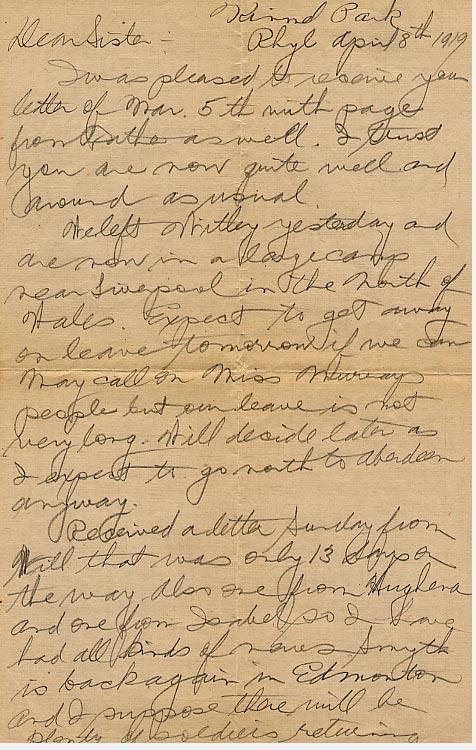 Kinmel Park
Rhyl April 8th 1919
Dear Sister -
I was pleased to receive your
letter of Mar. 5th with page
from as well. I trust
you are now quite well and
around as usual.
We left Witley yesterday and
are now in a large camp
near Liverpool in the North of
Wales. Expect to get away
on leave tomorrow if we can
May call on Miss Murrays
people but our leave is not
very long. Will decide later as
I expect to go north to Aberdeen
anyway.
Received a letter Sunday from
Will that was only 13 days on
the way. Also one from
and one from Isabel so I have
had all kinds of news Smyth
is back again in Edmonton
and I suppose there will be
plenty of soldiers returning